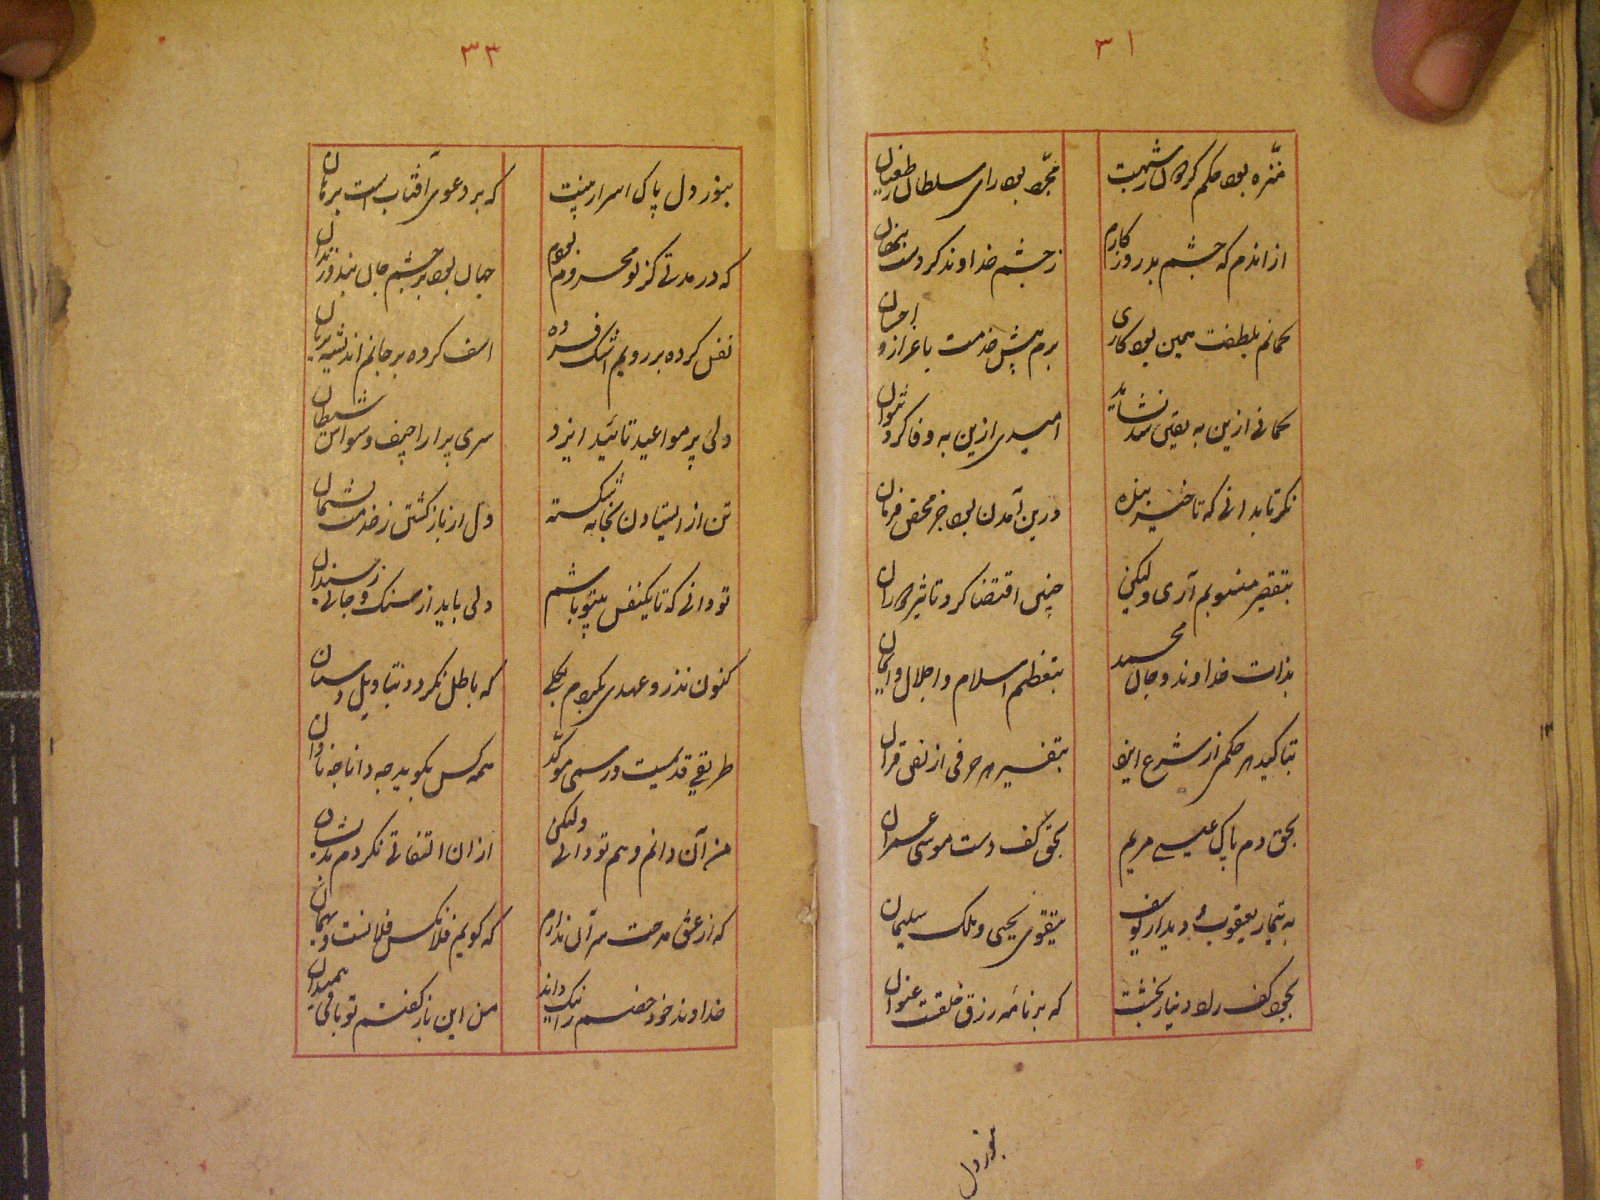 ۳۱
منزه بود حکم کردش ز شبهت
مجرد بود رای سلطان ز طغیان
از اندم که چشم بد روزگارم
ز چشم خداوند کردست پنهان
گمانم بلطفت همین بود کاری
برم پیش خدمت باعزاز و احسان
گمانی ازین به یقین شد نشاید
امیدی ازین به وفا کرد نتوان
نگر تا ندانی که تاخیر بنده
درین آمدن بود جز محض فرمان
بتقصیر منسوبم آری ولیکن
چنین اقتضا کرد تاثیر دوران
بذات خداوند و جان محمد
بتعظیم اسلام و اجلال و ایمان
بتاکید هر حکم از شرع ایزد
بتفسیر هر حرفی از نص قرآن
بحق دم پاک عیسی مریم
بحق کف دست موسی عمران
به تیمار یعقوب و دیدار یوسف
بتقوی یحیی و ملک سلیمان
بجود کف راد دنیا ببخشت
که بر نامهٔ رزق خلقت عنوان
بنور دل
۳۳
بنور دل پاک اسرار بینت
که بر دعوی آفتاب است برهان
که در مدتی کز تو محروم بودم
جهان بود بر چشم جان بند و زندان
نفس کرده بر رویم اشک فسرده
اسف کرده بر جانم اندیشه بریان
دلی پر مواعید تائید ایزد
سری پر اراجیف وسواس شیطان
تن از ایستادن بخانه شکسته
دل از باز گشتن ز خدمت پشیمان
تو دانی که تا یکنفس بیتو باشم
دلی باید از سنگ و جانی ز سندان
کنون نذر و عهدی بکردم بکلی
که باطل نگردد بتاویل و دستان
طریقی قدیمست و رسمی موکد
همه کس بگوید چه دانا چه نادان
من آن دانم و هم تو دانی ولیکن
از ان التفاتی نکردم بدیشان
که از عشق مدحت سر آن ندارم
که گویم فلانکس فلانست و بهمان
خداوند خود خصم را نیک داند
من این باز گفتم تو باقی همیدان